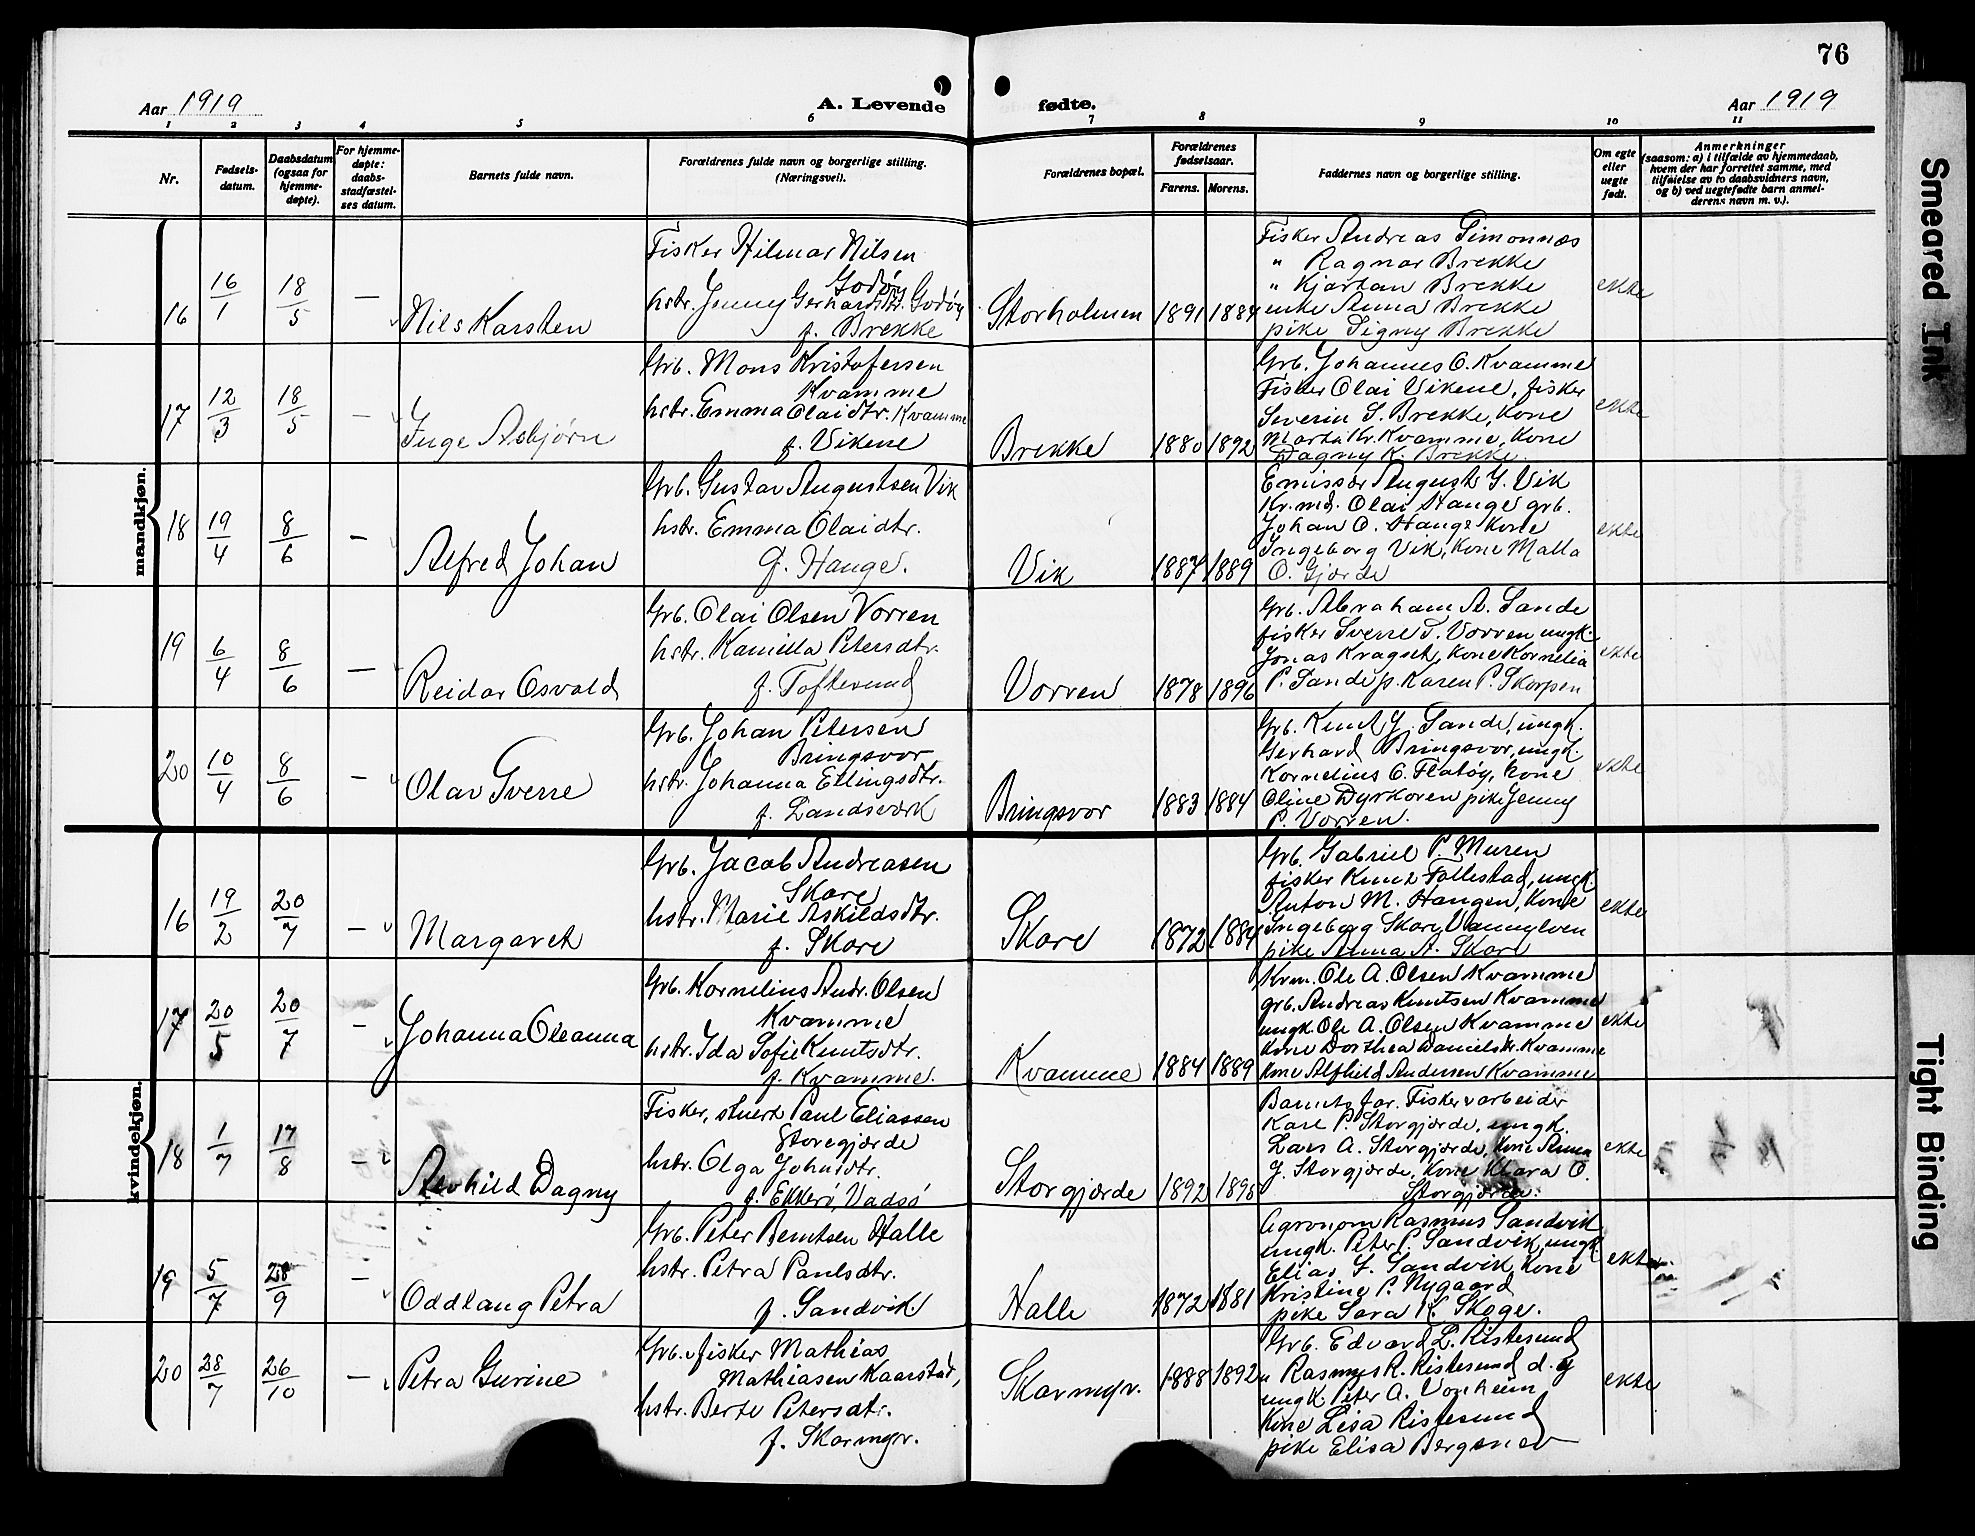 76
Aar 1919
A. Levende
fødte.
Aar 1919
1 2 3 4 5 6 7 8 9 10 11
Nr.
Fødsels-
datum.
Daabsdatum
(ogsaa for
hjemme-
døpte).
For hjemme-
døpte:
daabs-
stadfæstel-
ses datum.
Barnets fulde navn.
Forældrenes fulde navn og borgerlige stilling.
(Næringsvei).
Forældrenes bopæl.
Forældrenes
fødselsaar.
Farens. Morens.
Faddernes navn og borgerlige stilling.
Om egte
eller
uegte
født.
Anmerkninger
(saasom: a) i tilfælde av hjemmedaab,
hvem der har forrettet samme, med
tilføielse av to daabsvidners navn,
og b) ved uegtefødte barn anmel-
derens navn m. v.).
mandkjøn.
16
16/1
18/5
—
Nils Karsten
Fisker Hilmar Nilsen
Godøy
hstr. Jenny Gerhardsdtr. Godøy
f. Brekke
Storholmen
1891
1889
Fisker Andreas Simonnæs
" Ragnar Brekke
" Kjartan Brekke
enke Anna Brekke
pike Signy Brekke
ekte
17
12/3
18/5
—
Inge Asbjørn
Grb. Mons Kristofersen
Kvamme
hstr. Emma Olaidtr. Kvamme
f. Vikene
Brekke
1880
1892
Grb. Johannes O. Kvamme
Fisker Olai Vikene, fisker
Severin S. Brekke, kone
Marta Kr. Kvamme, kone
Dagny K. Brekke.
ekte
18
19/4
8/6
—
Alfred Johan
Grb. Gustav Augustsen Vik
hstr. Emma Olaidtr.
f. Hauge.
Vik
1887
1889
Emissær August G. Vik
Kr.md. Olai Hauge grb.
Johan O. Hauge kone
Ingeborg Vik, kone Malla
O. Gjørde
ekte
19
6/4
8/6
—
Reidar Osvald
Grb. Olai Olsen Vorren
hstr. Kamilla Petersdtr.
f. Toftesund
Vorren
1878
1896
Grb. Abraham A. Sande
fisker Sverre T. Vorren, ungk.
Jonas Kragset, kone Kornelia
P. Sande p. Karen P. Skorpen
ekte
20
10/4
8/6
—
Olav Sverre
Grb. Johan Petersen
Bringsvor
hstr. Johanna Ellingsdtr.
f. Landsværk
Bringsvor
1883
1884
Grb. Knut J. Sande, ungk.
Gerhard Bringsvor, ungk.
Kornelius O. Flatøy, kone
Oline Dyrkoren pike Jenny
P. Vorren.
ekte
kvindekjøn.
16
19/2
20/7
—
Margaret
Grb. Jacob Andreasen
Skare
hstr. Marie Askildsdtr.
f. Skare
Skare
1872
1884
Grb. Gabriel P. Muren
fisker Knut Follestad, ungk.
Anton M. Haugen, kone
Ingeborg Skare Vannylven
pike Anna A. Skare
ekte
17
20/5
20/7
—
Johanna Oleanna
Grb. Kornelius Andr. Olsen
Kvamme
hstr. Ida Sofie Knutsdtr.
f. Kvamme.
Kvamme
1884
1889
Krm. Ole A. Olsen Kvamme
grb. Andreas Knutsen Kvamme
ungk. Ole A. Olsen Kvamme
kone Dorthea Danielsdtr. Kvamme
kone Alfhild Andersen Kvamme
ekte
18
1/7
17/8
—
Alvhild Dagny
Fisker, stuert Paul Eliassen
Storegjærde
hstr. Olga Johnsdtr.
f. Ekkerø, Vadsø
Storgjærde
1892
1895
Barnets far. Fiskerarbeider
Kare P. Storgjærde, ungk.
Lars A. Storgjærde, kone Anna
J. Storgjærde, kone Klara O.
Storgjærde.
ekte
19
5/7
28/9
—
Oddlaug Petra
Grb. Peter Berntsen Halle
hstr. Petra Paulsdtr.
f. Sandvik
Halle
1872
1881
Agronom Rasmus Sandvik
ungk. Peter P. Sandvik, ungk.
Elias J. Sandvik, kone
Kristine P. Nygaard
pike Sara K. Skoge.
ekte
20
28/7
26/10
—
Petra Gurine
Grb. fisker Mathias
Mathiasen Kaarstad,
hstr. Berte Petersdtr.
f. Skarmyr.
Skarmyr.
1888
1892
Grb. Edvard L. Ristesund
" Rasmus R. Ristesund d. y
ungk. Peter A. Vonheim
kone Lisa Ristesund
pike Elisa Bergsnev
ekte
Smeared Ink
Tight Binding